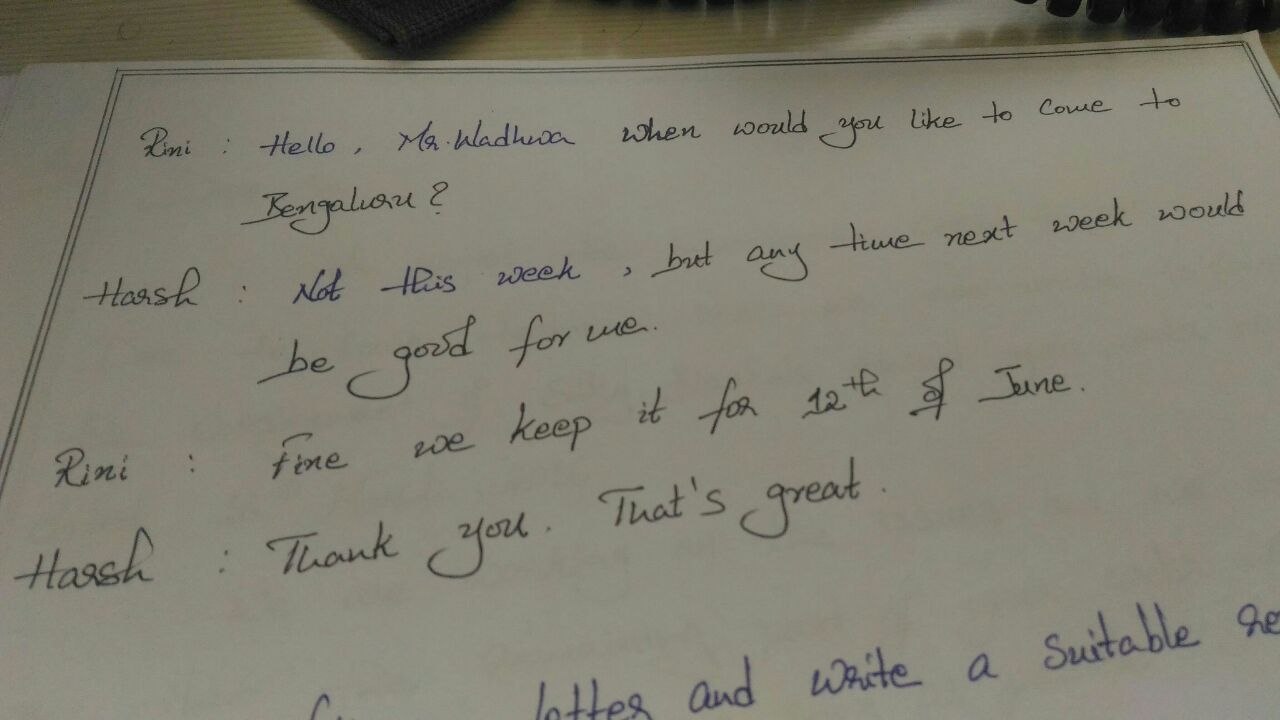 Rini : Hello, Mr. Wadhwa when would you like to come to
Bengaluru?
Harsh : Not this week, but any time next week would
be good for me.
Rini : Fine we keep it for 12th of June.
Harsh : Thank you. That's great.
letter and write a suitable